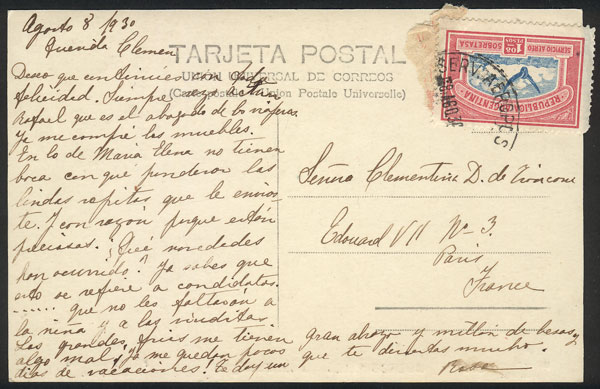 Agosto 8/930
Querida Clemen
TARJETA POSTAL
UNION UNIVERSAL DE CORREOS
(Carte postale Union Postale Universelle)
Deseo que continúes con
felicidad. Siempre rezo a San
Rafael que es el abogado de los
Ya me compré los muebles.
En lo de María Elena no tienen
boca con que ponderar las
lindas que le
te. Y con razón porque están
preciosas. ¿Qué novedades
han ocurrido? Ya sabes que
esto se refiere a candidatos.
...... que no les faltarán a
la niña y a las viuditas.
Las grandes, me tienen
algo mal, ya me quedan pocos
días de vacaciones. Te doy un
gran abrazo y millón de besos y
que te diviertas mucho.
SERVICIO AEREO
1.08
PESOS
SOBRETASA
REPUBLICA ARGENTINA
Señora Clementina D. de
Edouard VII Nº 3.
Paris
France